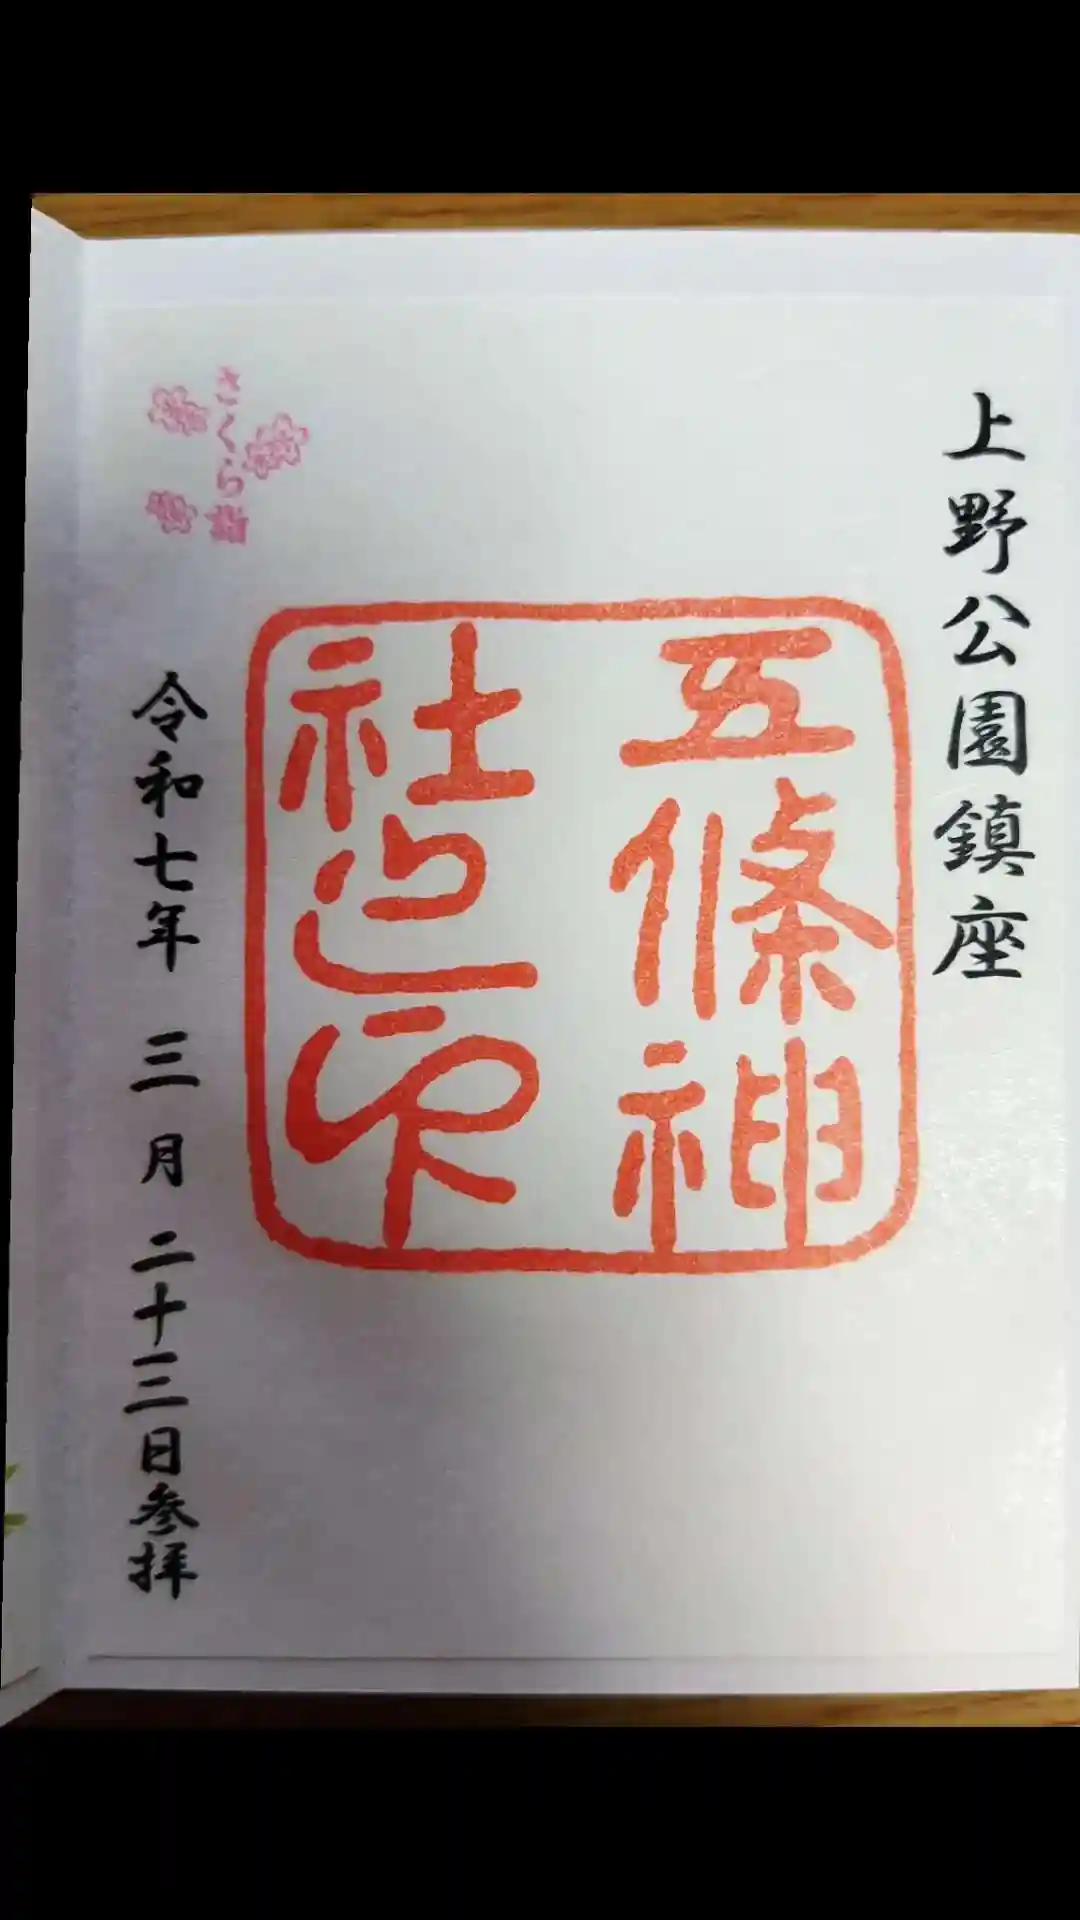 上野公園鎮座
五條神
社之印
さくら詣
令和七年 三月 二十三日参拝